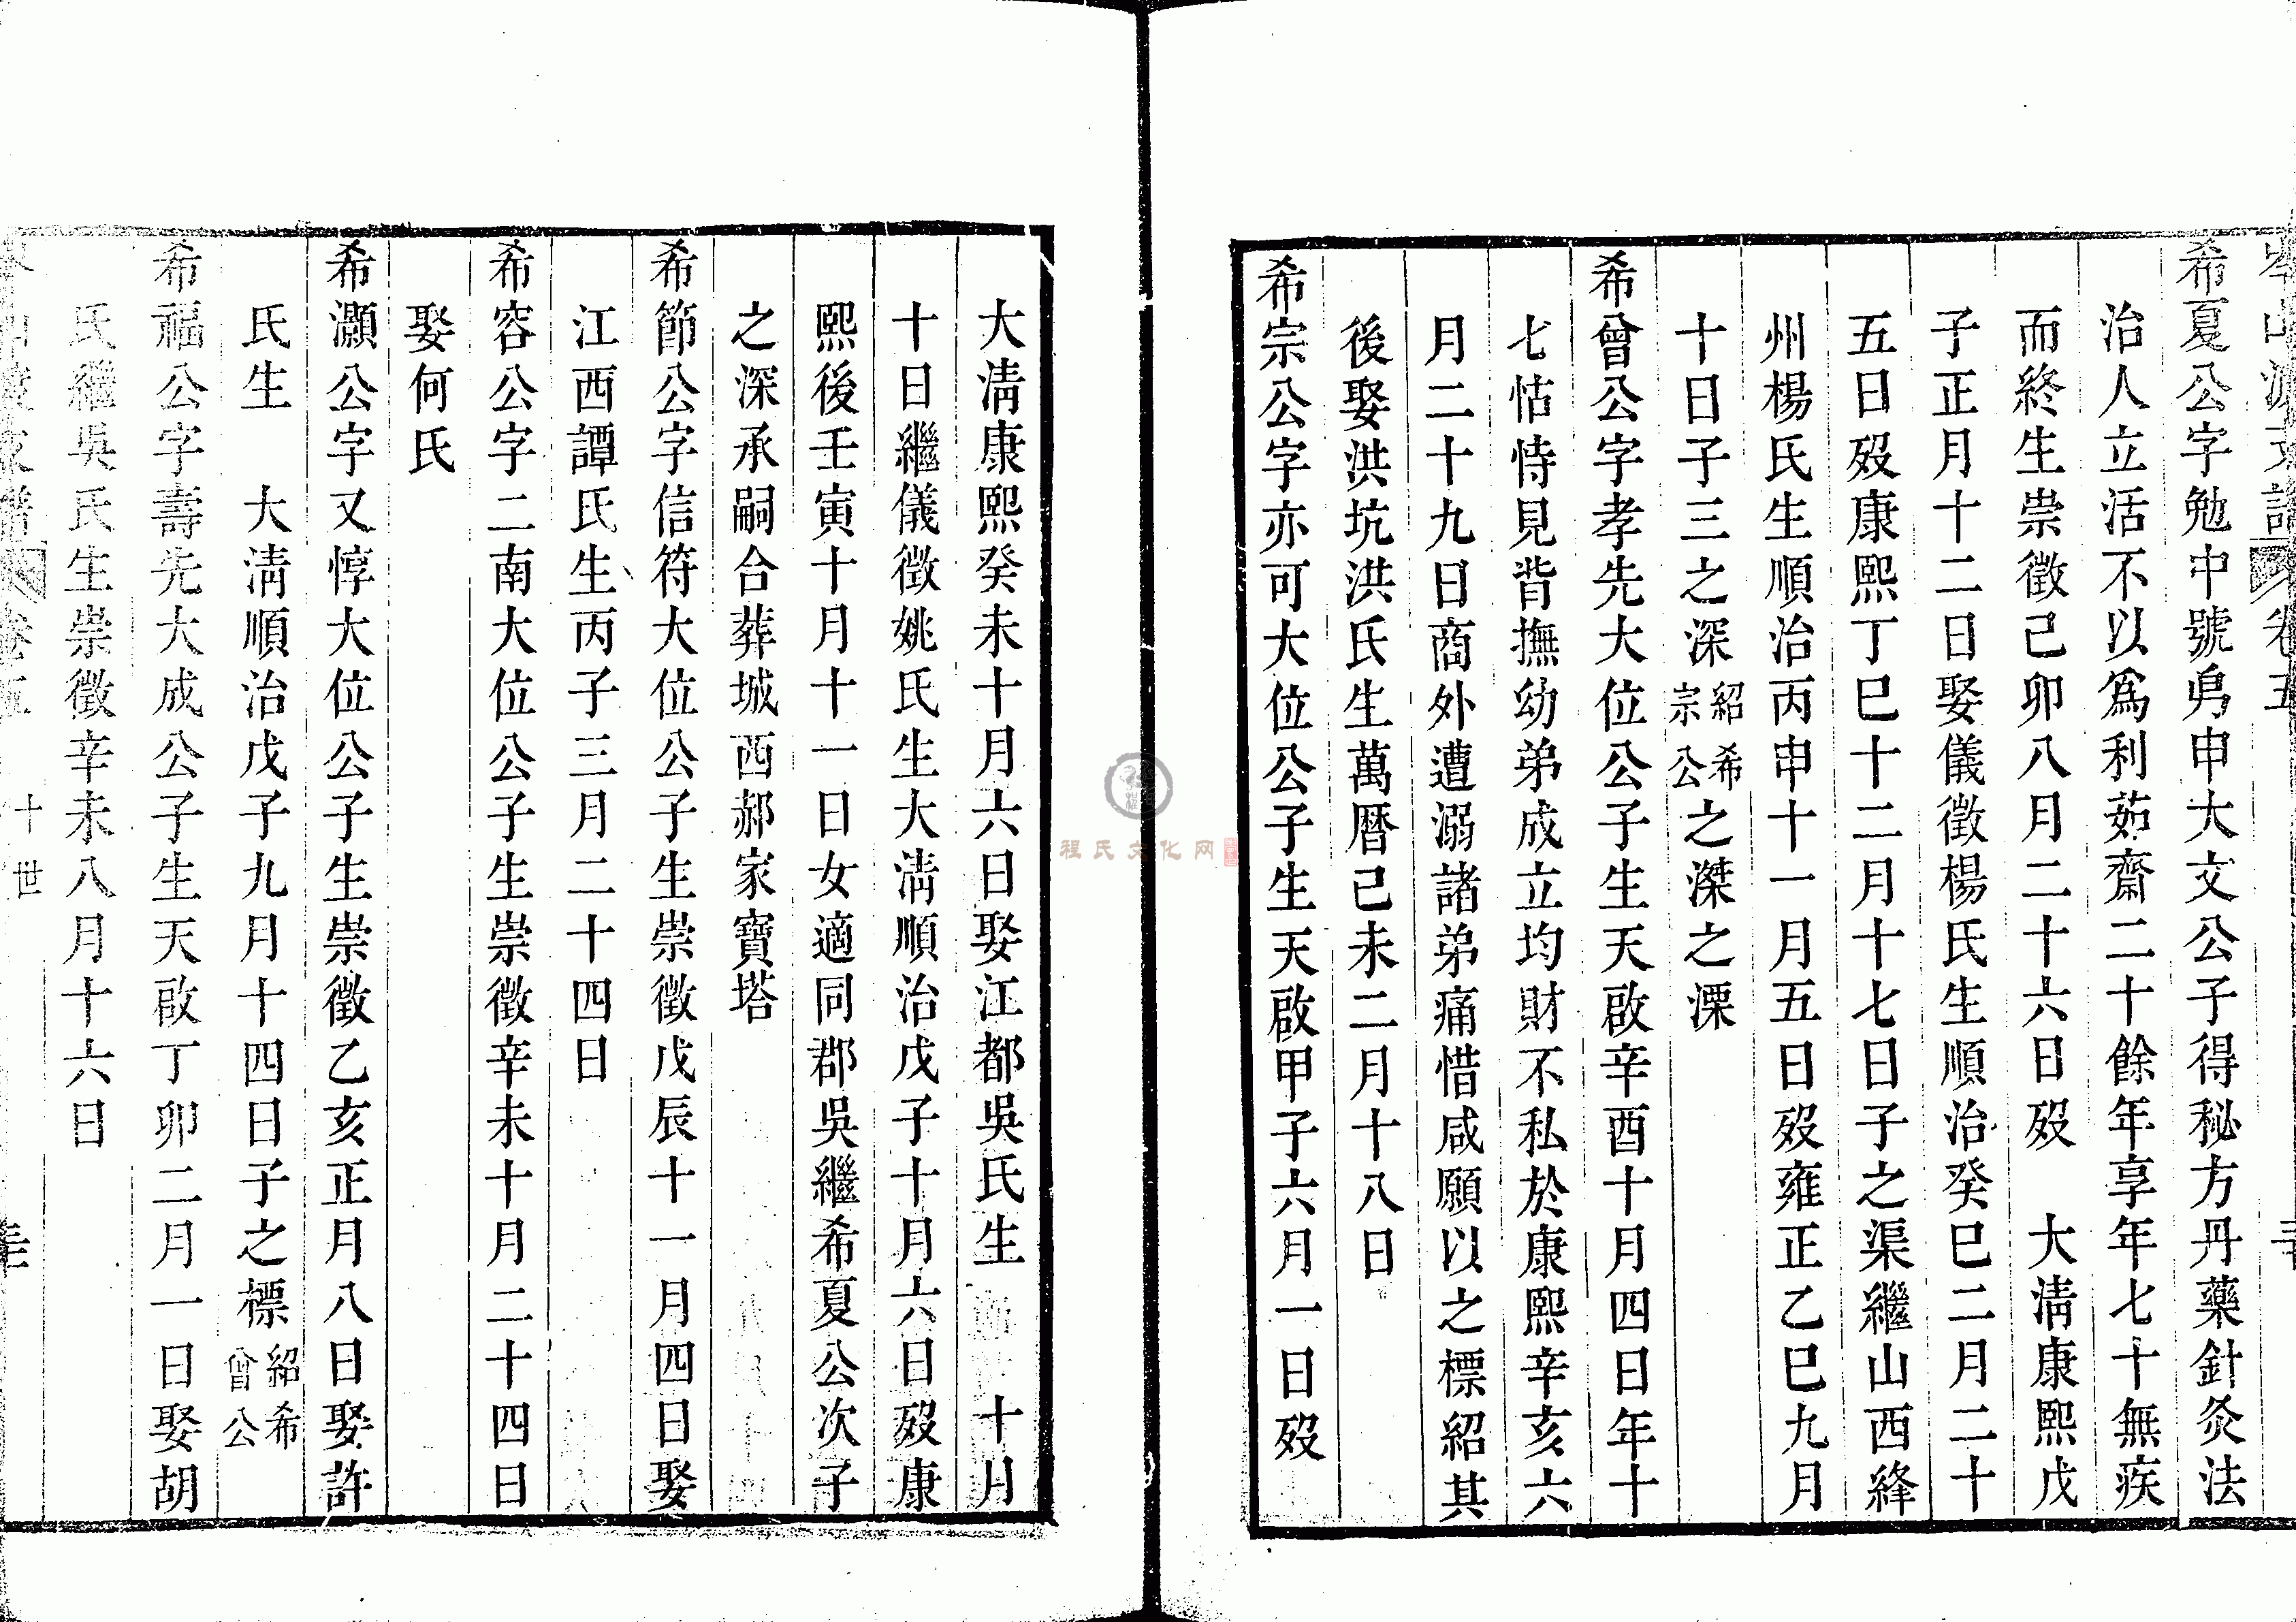 卷五
希夏公字勉中號㒵申大文公子得秘方丹藥針灸法
治人立活不以爲利茹齋二十餘年享年七十無疾
而終生崇徵己卯八月二十六日歿　大淸康熙戊
子正月十二日娶儀徵楊氏生順治癸巳二月二十
五日歿康熙丁巳十二月十七日子之渠繼山西絳
州楊氏生順治丙申十一月五日歿雍正乙巳九月
十日子三之深紹希宗公之滐之溧
希曾公字孝先大位公子生天啟辛酉十月四日年十
七怙恃見背撫幼弟成立均財不私於康熙辛亥六
月二十九日商外遭溺諸弟痛惜咸願以之標紹其
後娶洪坑洪氏生萬曆己未二月十八日
希宗公字亦可大位公子生天啟甲子六月一日歿
大淸康熙癸未十月六日娶江都吳氏生　十月
十日繼儀徵姚氏生大淸順治戊子十月六日歿康
熙後壬寅十月十一日女適同郡吳繼希夏公次子
之深承嗣合葬城西郝家寶塔
希節公字信符大位公子生崇徵戊辰十一月四日娶
江西譚氏生丙子三月二十四日
希容公字二南大位公子生崇徵辛未十月二十四日
娶何氏
希灝公字又惇大位公子生崇徵乙亥正月八日娶許
氏生　大淸順治戊子九月十四日子之標紹希曾公
希福公字壽先大成公子生天啟丁卯二月一日娶胡
氏繼吳氏生崇徵辛未八月十六日
卷五　十世
程氏文化网